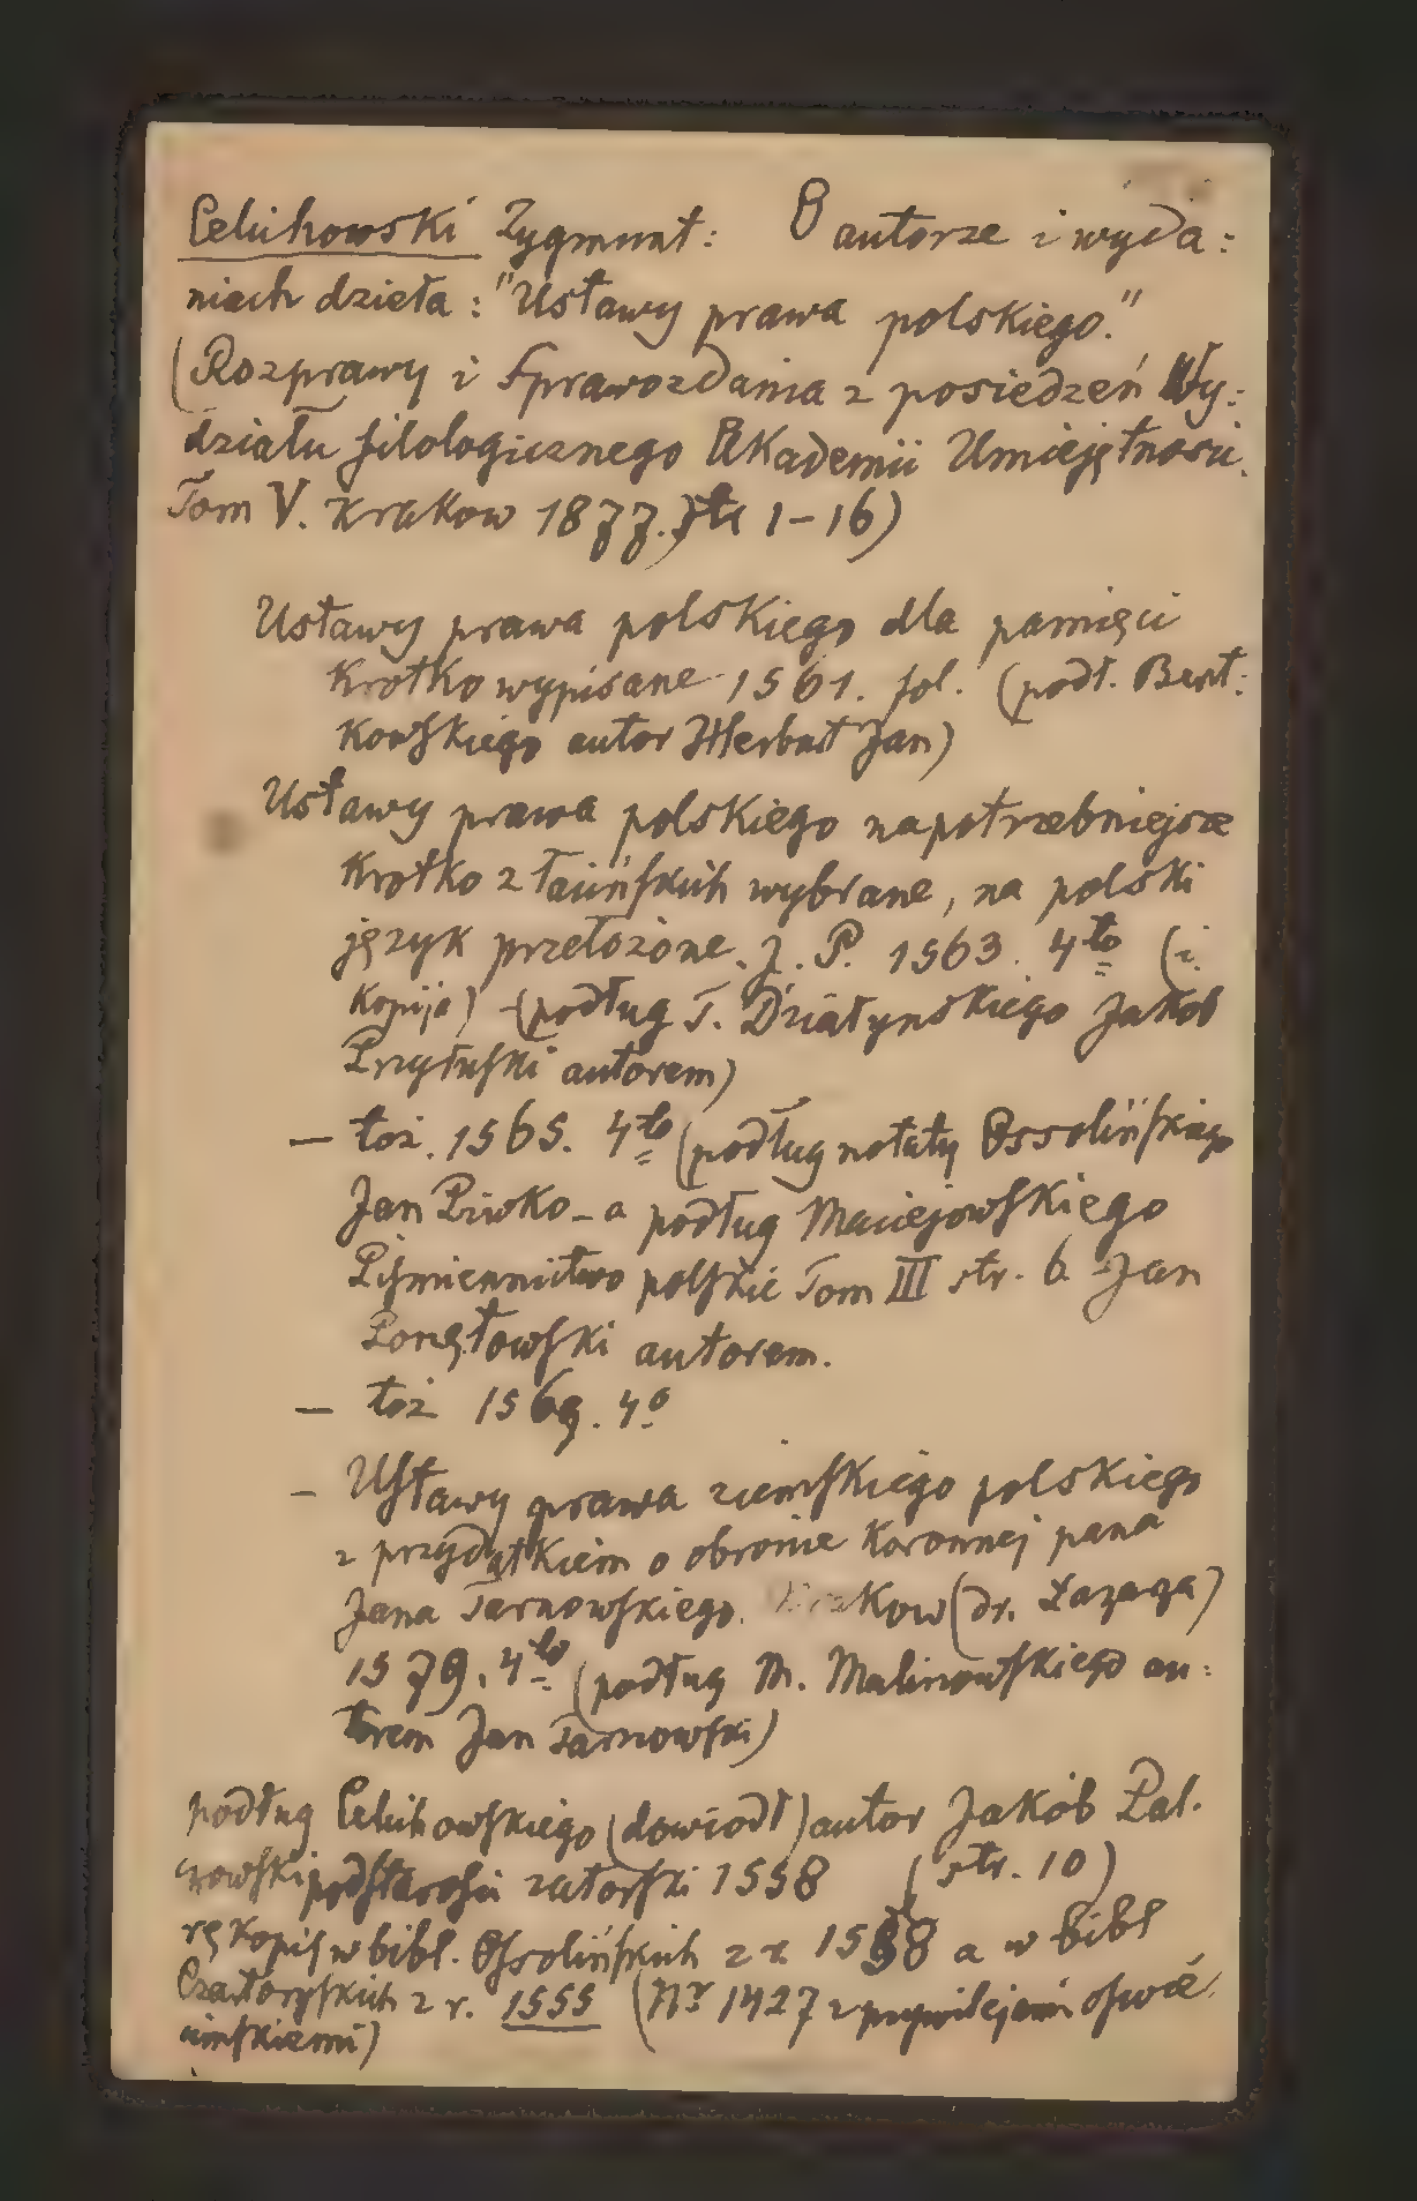 Celichowski Zygmunt: O autorze i wyda:
niach dzieła: "Ustawy prawa polskiego."
(Rozprawy i Sprawozdania z posiedzeń Wy:
działu filologicznego Akademii Umiejętności.
Tom V. Krakow 1877. str 1-16)
Ustawy prawa polskiego dla pamięci
krotko wypisane 1561. fol. (podł. Bent:
kowskiego autor Herburt Jan)
Ustawy prawa polskiego napotrzebniejsze
krotko z łacińskich wybrane, na polski
język przełożone. J. P. 1563. 4to (i.
kopija) - (podług T. Działynskiego Jakób
Przyłuski autorem)
— toż. 1565. 4to (podług notaty Ossolińskiego
Jan Piwko - a podług Maciejowskiego
Piśmiennictwo polskie Tom III str. 6. Jan
Ponętowski autorem.
— toż 1569. 4o
- Ustawy prawa ziemskiego polskiego
z przydatkiem o obronie Koronnej pana
Jana Tarnowskiego. Krakow (dr. Łazarza)
1579. 4to (podług M. Malinowskiego au:
torem Jan Tarnowski)
podług Celichowskiego (dowiodł) autor Jakób Pal.
czowski podstarości zatorski 1558 (str. 10)
rękopis w bibl. Ossolińskich z r. 1558 a w bibl
Czartoryskich z r. 1555 (Nr 1427 z przywilejami oświę
cimskiemi)